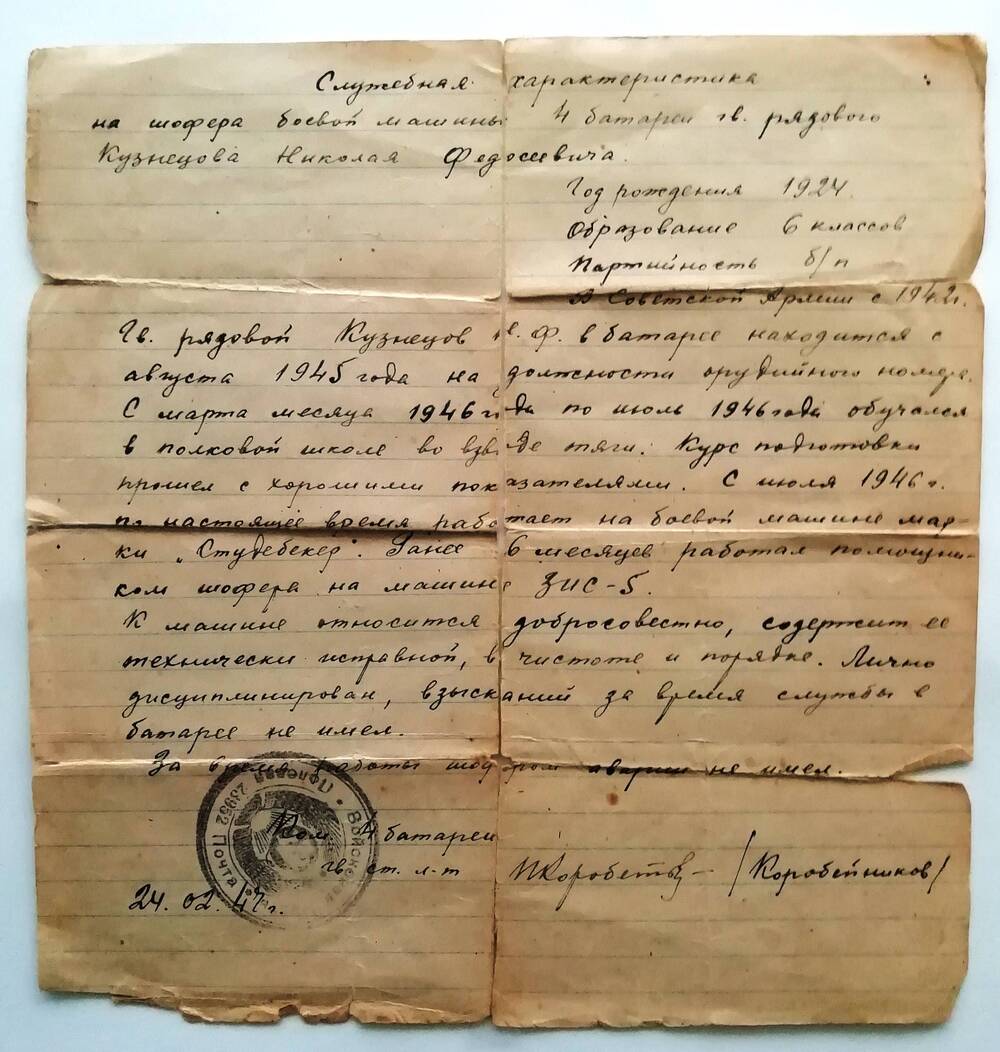 Служебная характеристика
на шофера боевой машины 4 батареи гв. рядового
Кузнецова Николая Федосеевича.
Год рождения 1924
Образование 6 классов
Партийность б/п
В Советской Армии с 1942г.
Гв. рядовой Кузнецов Н. Ф. в батарее находится с
августа 1945 года на должности орудийного номера.
С марта месяца 1946 года по июль 1946 года обучался
в полковой школе во взводе тяги. Курс подготовки
прошел с хорошими показателями. С июля 1946 г.
по настоящее время работает на боевой машине мар-
ки „Студебекер". Ранее 6 месяцев работал помощни-
ком шофера на машине ЗИС-5.
К машине относится добросовестно, содержит ее
технически исправной, в чистоте и порядке. Лично
дисциплинирован, взысканий за время службы в
батарее не имел.
За время работы шофером аварии не имел.
Ком. 4 батареи
гв. ст. л-т /Коробейников/
24.02.47г.
Войсковая часть Полевая Почта 23952